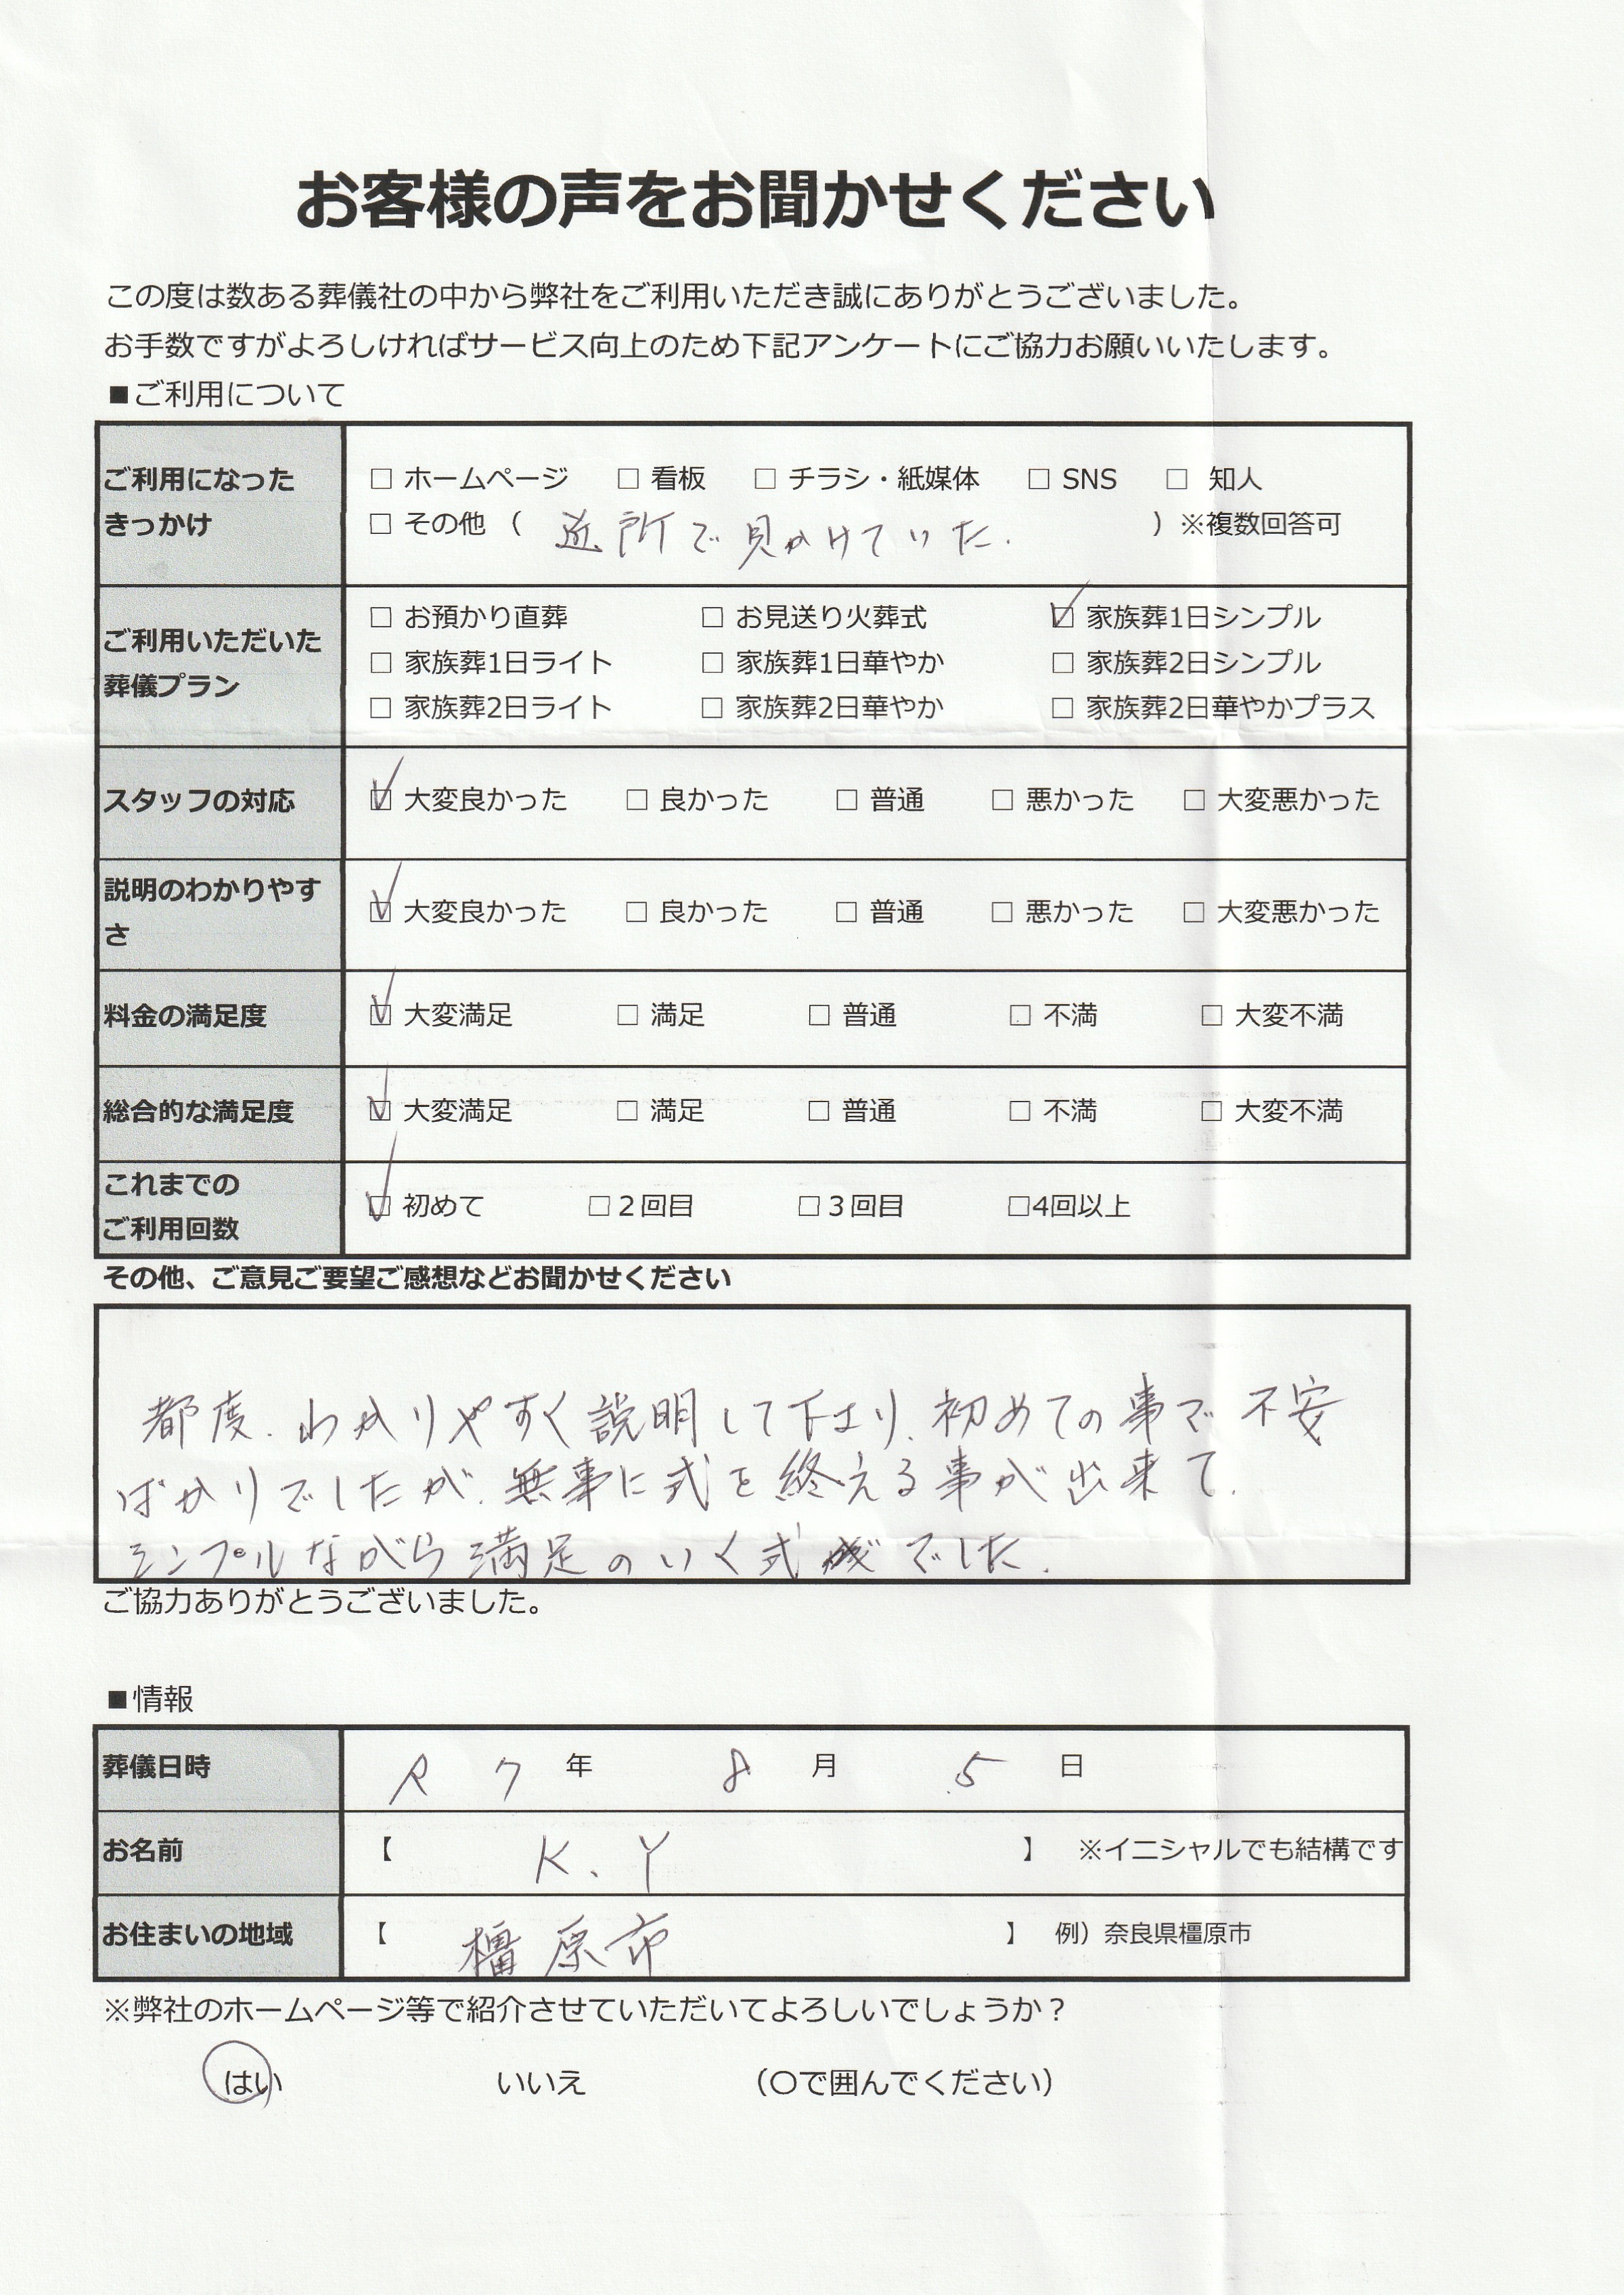 お客様の声をお聞かせください
この度は数ある葬儀社の中から弊社をご利用いただき誠にありがとうございました。
お手数ですがよろしければサービス向上のため下記アンケートにご協力お願いいたします。
■ご利用について
ご利用になった
きっかけ
□ ホームページ □ 看板 □ チラシ・紙媒体 □ SNS □ 知人
□ その他 （ 近所で見かけていた. ）※複数回答可
ご利用いただいた
葬儀プラン
□ お預かり直葬 □ お見送り火葬式 ☑ 家族葬1日シンプル
□ 家族葬1日ライト □ 家族葬1日華やか □ 家族葬2日シンプル
□ 家族葬2日ライト □ 家族葬2日華やか □ 家族葬2日華やかプラス
スタッフの対応
☑ 大変良かった □ 良かった □ 普通 □ 悪かった □ 大変悪かった
説明のわかりやす
さ
☑ 大変良かった □ 良かった □ 普通 □ 悪かった □ 大変悪かった
料金の満足度
☑ 大変満足 □ 満足 □ 普通 □ 不満 □ 大変不満
総合的な満足度
☑ 大変満足 □ 満足 □ 普通 □ 不満 □ 大変不満
これまでの
ご利用回数
☑ 初めて □２回目 □３回目 □4回以上
その他、ご意見ご要望ご感想などお聞かせください
都度、わかりやすく説明して下さり、初めての事で不安
ばかりでしたが、無事に式を終える事が出来て、
シンプルながら満足のいく式でした.
ご協力ありがとうございました。
■情報
葬儀日時
R 7 年 8 月 5 日
お名前
【 K、Y 】 ※イニシャルでも結構です
お住まいの地域
【 橿原市 】 例）奈良県橿原市
※弊社のホームページ等で紹介させていただいてよろしいでしょうか？
はい いいえ （〇で囲んでください）